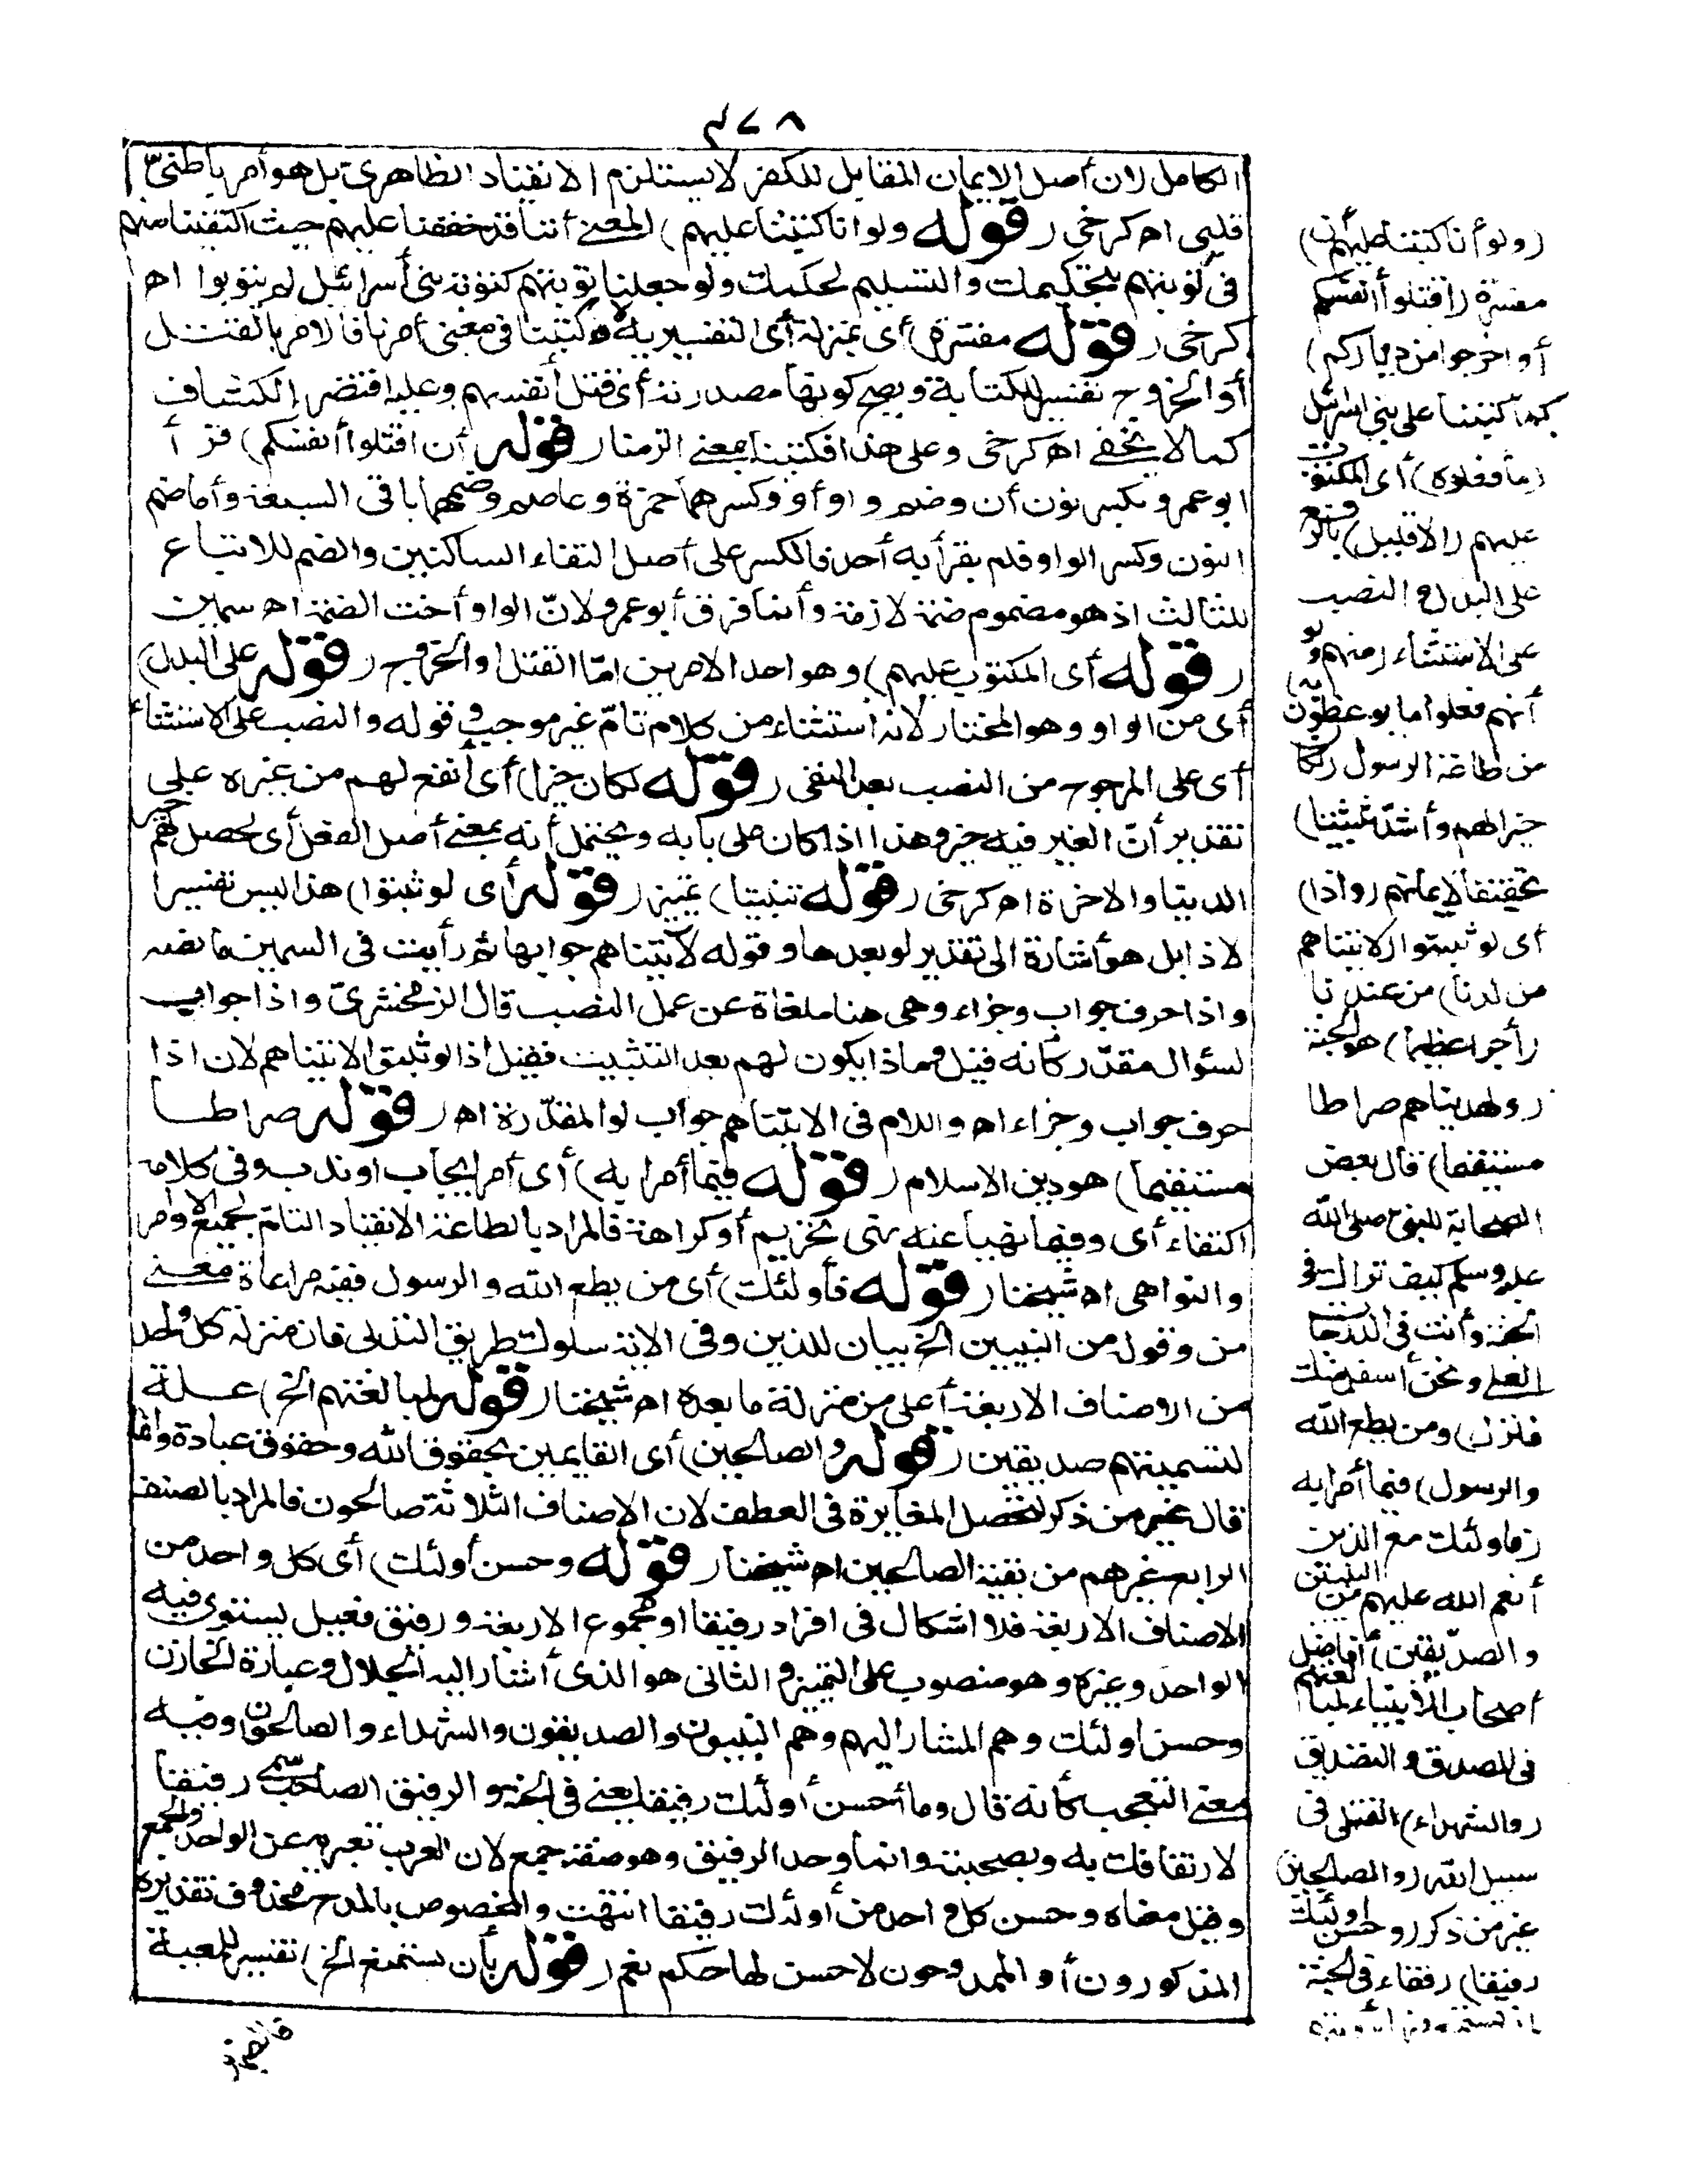 ٤٧٨
الكامل لان أصل الايمان المقابل للكفر لا يستلزم الانقياد الظاهرى بل هو أمر باطنىّ
قلبى اه كرخى (قوله ولو انا كتبنا عليهم) المعنى أننا قد خففنا عليهم حيث اكتفينا منهم
فى توبتهم بتحكيمك والتسليم لحكمك ولو جعلنا توبتهم كتوبة بنى أسرائيل لم يتوبوا اه
كرخى (قوله مفسرة) أى بمنزلة أى التفسيرية وكتبنا فى معنى أمرنا فالامر بالقتل
أو الخروج تفسير للكتابة ويصح كونها مصدرية أى قتل أنفسهم وعليه اقتصر الكشاف
كما لا يخفى اه كرخى وعلى هذا فكتبنا بمعنى الزمنا (قوله أن اقتلوا أنفسكم) قرأ
ابو عمرو بكسر نون أن وضم واو أو وكسرهما حمزة وعاصم وضمهما باقى السبعة وأما ضم
النون وكسر الواو فلم يقرأ به أحد فالكسر على أصل التقاء الساكنين والضم للاتباع
للثالث اذ هو مضموم ضمة لازمة وأنما فرق أبو عمرو لانّ الواو أخت الضمة اه سمين
(قوله أى المكتوب عليهم) وهو احد الامرين امّا القتل او الخروج (قوله على البدل)
أى من الواو وهو المختار لانه استثناء من كلام تامّ غير موجب وقوله والنصب على الاستثناء
أى على المرجوح من النصب بعد النفى (قوله لكان خيرا) أى أنفع لهم من غيره على
تقدير أنّ الغير فيه خير وهذا اذا كان على بابه ويحتمل أنه بمعنى أصل الفعل أى لحصل لهم خير
الدنيا والاخرة اه كرخى (قوله تثبيتا) تمييز (قوله أى لو ثبتوا) هذا ليس تفسيرا
لاذا بل هو أشارة الى تقدير لو بعدها وقوله لآتيناهم جوابها ثم رأيت فى السمين ما نصه
واذا حرف جواب وجزاء وهى هنا ملغاة عن عمل النصب قال الزمخشرىّ واذا جواب
لسؤال مقدّر كانه قيل وماذا يكون لهم بعد التثبيت فقيل اذا لو ثبتوا لاتيناهم لان اذا
حرف جواب وجزاء اه واللام فى لاتيناهم جواب لو المقدّرة اه (قوله صراطا
مستقيما) هو دين الاسلام (قوله فيما أمرا به) أى أمر ايجاب او ندب وفى كلامه
اكتفاء أى وفيما نهيا عنه نهى تحريم أو كراهة فالمراد بالطاعة الانقياد التامّ لجميع الاوامر
والنواهى اه شيخنا (قوله فأولئك) أى من يطع الله والرسول ففيه مراعاة معنى
من وقوله من النبيين الخ بيان للذين وفى الاية سلوك طريق التدلى فان منزلة كل واحد
من الاصناف الاربعة أعلى من منزلة ما بعده اه شيخنا (قوله لمبالغتهم الخ) علة
لتسميتهم صديقين (قوله والصالحين) أى القايمين بحقوق الله وحقوق عباده وانما
قال غير من ذكر لتحصل المغايرة فى العطف لان الاصناف الثلاثة صالحون فالمراد بالصنف
الرابع غيرهم من بقية الصالحين اه شيخنا (قوله وحسن أولئك) أى كل واحد من
الاصناف الاربعة فلا اشكال فى افراد رفيقا او مجموع الاربعة ورفيق فعيل يستوى فيه
الواحد وغيره وهو منصوب على التمييز والثانى هو الذى أشار اليه الجلال وعبارة الخازن
وحسن اولئك وهم المشار اليهم وهم النبيون والصديقون والشهداء والصالحون وفيه
معنى التعجب كأنه قال وما أحسن أولئك رفيقا يعنى فى الجنة والرفيق الصاحب سمى رفيقا
لارتفاقك به وبصحبته وانما وحد الرفيق وهو صفة جمع لان العرب تعبر به عن الواحد والجمع
وقيل معناه وحسن كل واحد من أولئك رفيقا انتهت والمخصوص بالمدح محذوف تقديره
المذكورون أو الممدوحون لاحسن لها حكم نعم (قوله بأن يستمتع الخ) تفسير للمعية
(ولو أنا كتبنا عليهم أن)
مفسرة (اقتلوا أنفسكم
أو اخرجوا من دياركم)
كما كتبنا على بنى اسرائيل
(ما فعلوه) أى المكتوب
عليهم (الا قليل) بالرفع
على البدل والنصب
على الاستثناء (منهم ولو
أنهم فعلوا ما يوعظون به)
من طاعة الرسول (لكان
خيرا لهم وأشدّ تثبيتا)
تحقيقا لايمانهم (واذا)
أى لو ثبتوا (لاتيناهم
من لدنا) من عندنا
(أجرا عظيما) هو الجنة
(ولهديناهم صراطا
مستقيما) قال بعض
الصحابة للنبىّ صلى الله
عليه وسلم كيف نراك فى
الجنة وأنت فى الدرجات
العلى ونحن أسفل منك
فنزل (ومن يطع الله
والرسول) فيما أمرا به
(فاولئك مع الذين
أنعم الله عليهم من النبيين
والصدّيقين) أفاضل
أصحاب الأنبياء لمبالغتهم
فى الصدق والتصديق
(والشهداء) القتلى فى
سبيل الله (والصالحين)
غير من ذكر (وحسن أولئك
رفيقا) رفقاء فى الجنة